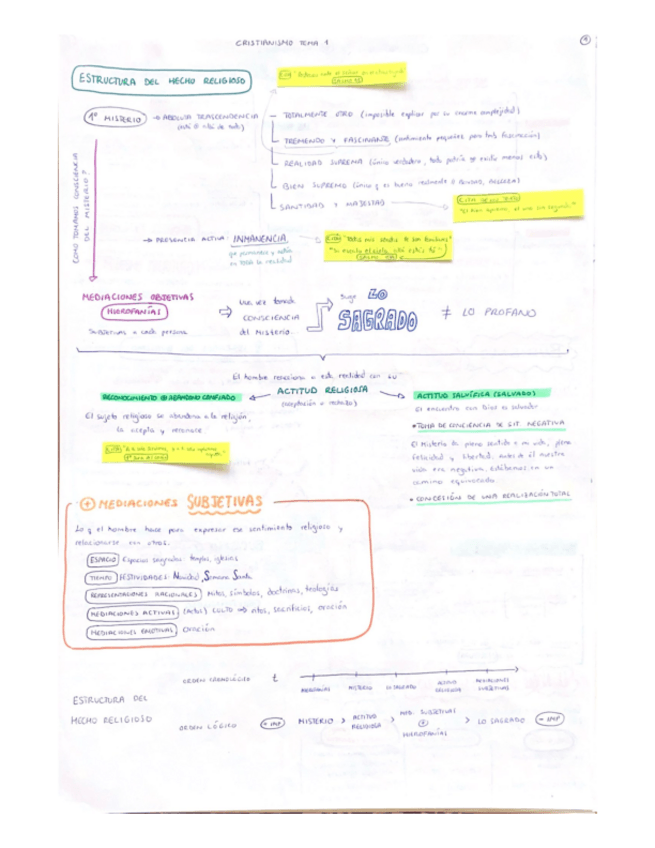 CRISTIANISMO TEMA 1
ESTRUCTURA DEL HECHO RELIGIOSO
1º MISTERIO → ABSOLUTA TRASCENDENCIA
(está + allá de todo)
TOTALMENTE OTRO (imposible explicar por su enorme complejidad)
TREMENDO Y FASCINANTE
REALIDAD SUPREMA
BIEN SUPREMO
SANTIDAD Y MAJESTAD
→ PRESENCIA ACTIVA: INMANENCIA
COMO TOMAMOS CONSCIENCIA
DEL MISTERIO?
MEDIACIONES OBJETIVAS
HIEROFANÍAS
Subjetivas a cada persona
Una vez tomada
CONSCIENCIA
del MISTERIO
Surge LO
SAGRADO
≠ LO PROFANO
El hombre reacciona a esta realidad con su
ACTITUD RELIGIOSA
(aceptación o rechazo)
RECONOCIMIENTO + ABANDONO CONFIADO
El sujeto religioso se abandona a la religión,
la acepta y reconoce.
ACTITUD SALVÍFICA (SALVADO)
El encuentro con Dios es salvador
• TOMA DE CONCIENCIA DE SIT. NEGATIVA
El Misterio da pleno sentido a mi vida, plena
felicidad y libertad, antes de él nuestra
vida era negativa, estábamos en un
camino equivocado.
• CONCESIÓN DE UNA REALIZACIÓN TOTAL
+ MEDIACIONES SUBJETIVAS
Lo q el hombre hace para expresar ese sentimiento religioso y
relacionarse con otros.
ESPACIO Espacios sagrados: templos, iglesias
TIEMPO FESTIVIDADES: Navidad, Semana Santa
REPRESENTACIONES RACIONALES Mitos, símbolos, doctrinas, teologías
MEDIACIONES ACTIVAS (Actos) CULTO ⇒ ritos, sacrificios, oración
MEDIACIONES EMOTIVAS Oración
ESTRUCTURA DEL
HECHO RELIGIOSO
ORDEN CRONOLÓGICO t
HIEROFANÍAS MISTERIO LO SAGRADO ACTITUD RELIGIOSA MEDIACIONES SUBJETIVAS
ORDEN LÓGICO + IMP MISTERIO > ACTITUD RELIGIOSA > MED. SUBJETIVAS + HIEROFANÍAS > LO SAGRADO - IMP